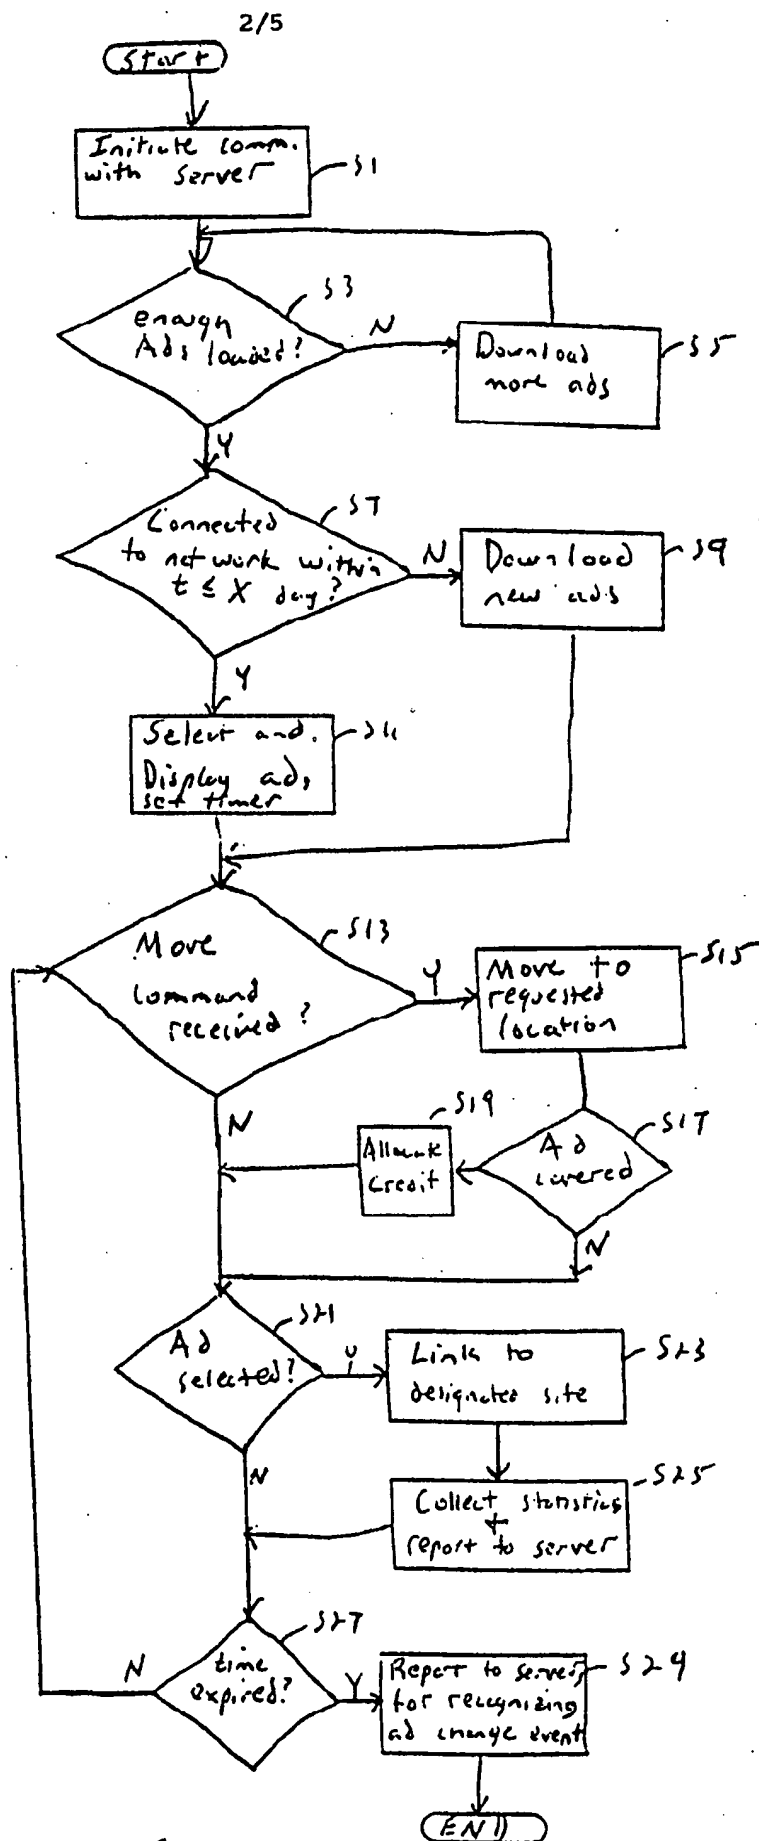 2/5
Start
Initiate comm.
with server
S1
S3
enough
Ads loaded?
N
Download
more ads
S5
Y
S7
Connected
to network within
t ≤ X day?
N
Download
new ads
S9
Y
Select and
Display ad,
set timer
S11
Move
command
received?
S13
Y
Move to
requested
location
S15
N
S19
Allocate
Credit
Ad
covered
S17
N
Ad
selected?
S21
Y
Link to
designated site
S23
N
Collect statistics
+
report to server
S25
S27
time
expired?
N
Y
Report to server
for recognizing
ad change event
S29
END